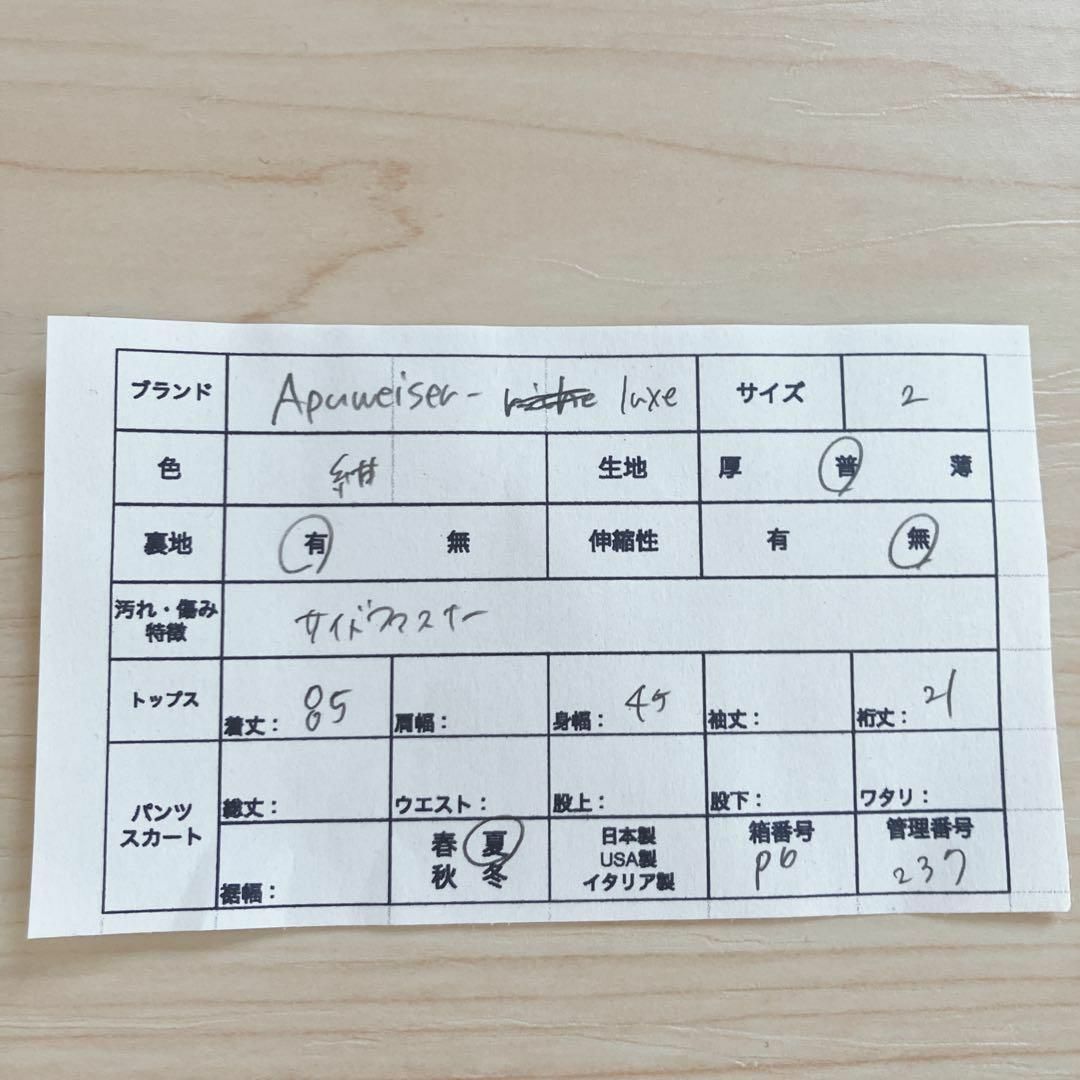 ブランド Apuweiser- luxe サイズ 2
色 紺 生地 厚 普 薄
裏地 有 無 伸縮性 有 無
汚れ・傷み
特徴 サイドファスナー
トップス 着丈: 85 肩幅: 身幅: 45 袖丈: 裄丈: 21
パンツ
スカート 総丈: ウエスト: 股上: 股下: ワタリ:
裾幅: 春 夏 日本製 箱番号 管理番号
秋 冬 USA製 P6 237
イタリア製